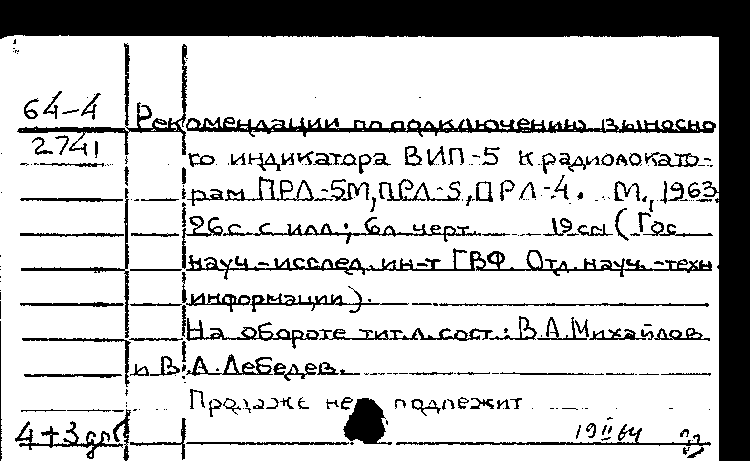 64-4
Рекомендации по подключению выносно
2741
го индикатора ВИП-5 к радиолокато-
рам ПРЛ-5М, ПРЛ-5, ПРЛ-4. М., 1963
26с. с илл.; 6л. черт. 19см (Гос
науч.-исслед. ин-т ГВФ. Отд. науч.-техн
информации).
На обороте тит. л. сост.: В.А. Михайлов
и В.А. Лебедев.
Продаже не подлежит
4+3 дпб 19 II 64